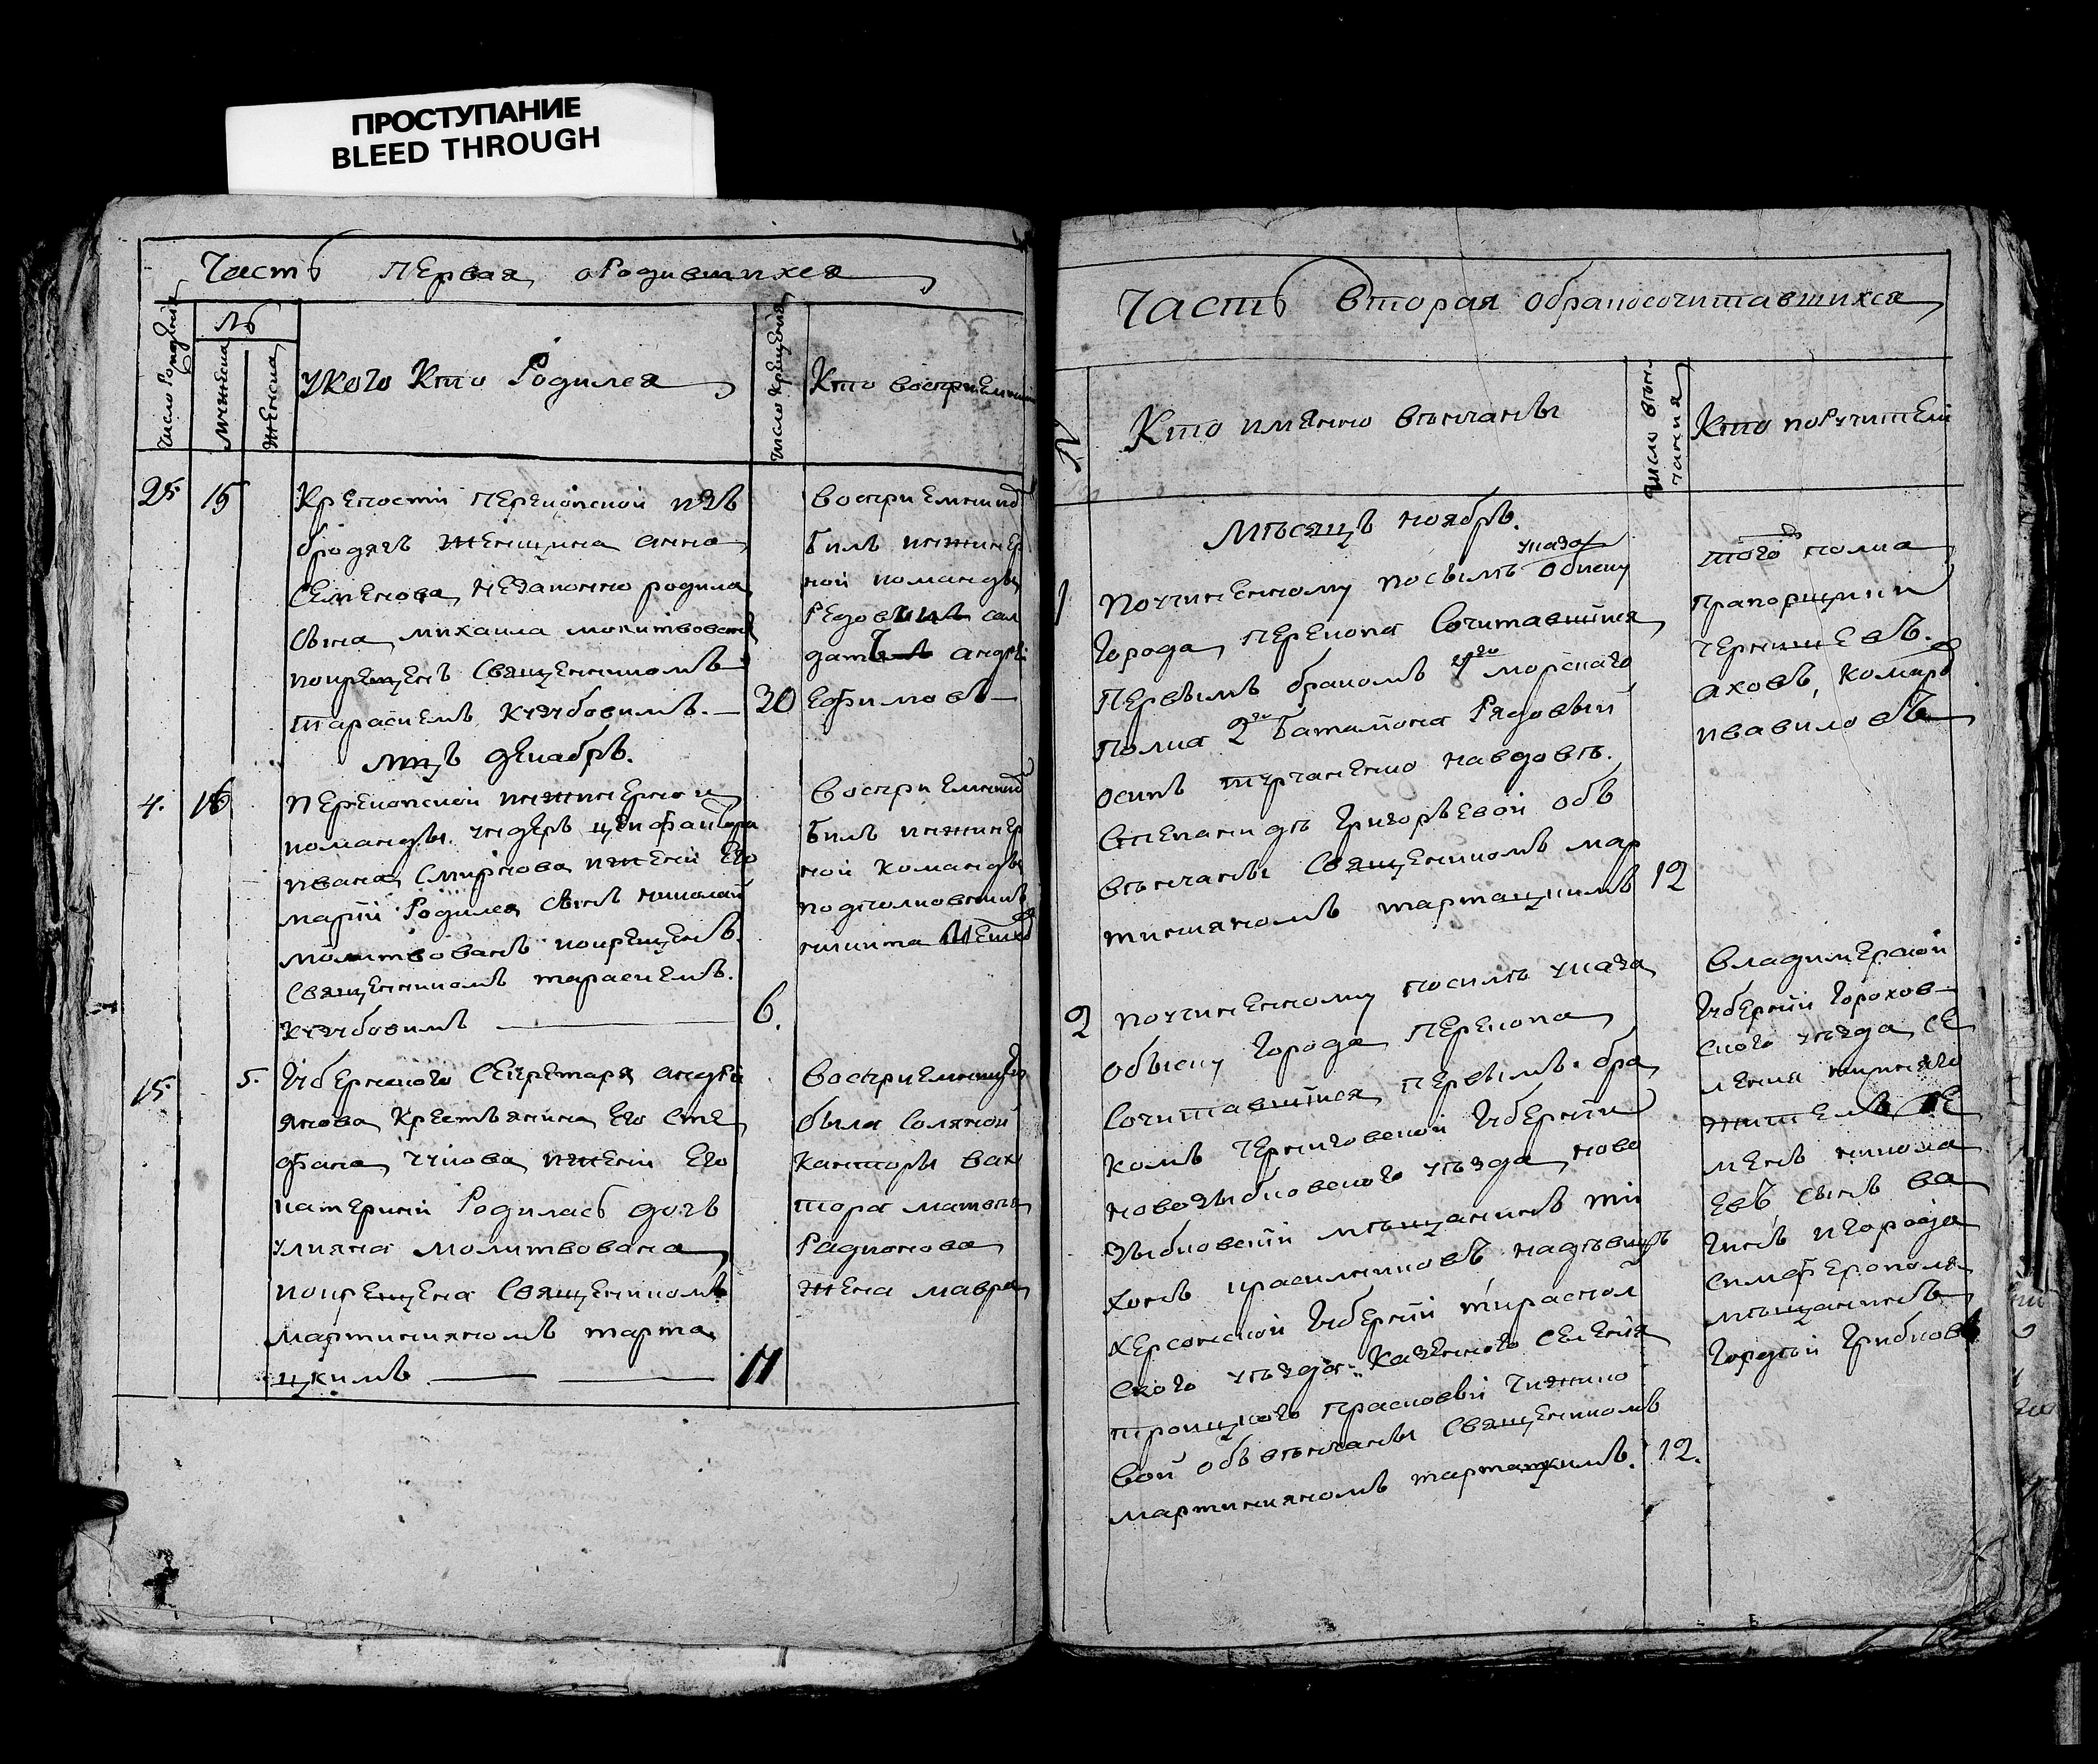 ПРОСТУПАНИЕ
BLEED THROUGH
Часть первая ородившихся
число рождения
№
мужеска
женска
укого Кто Родился
число крещения
Кто восприемники
25. 15
Крепости перекопской изъ
бродягъ женщина анна
Семенова, незаконно родила
сына михаила молитвованъ
покрещенъ Священникомъ
тарасиемъ Кузубовимъ.—
30
восприемникъ
билъ инжинер
ной команды
Редовимъ сал
датъ андрей
ефимовъ—
мцъ декабръ.
4. 16
перекопской инжинерной
команды ундеръ
ивана Смирнова ижени Его
марии Родился сынъ николай
молитвованъ покрещенъ
Священникомъ тарасиемъ.
Кузубовимъ
6.
восприемникъ
билъ инжинер
ной команды
подполковникъ
никита
15. 5.
Губернского Секретаря андрея
янова Крестьянина Его Сте
фана чукова ижени Его
катерини Родилась дочь
улияна молитвована
покрещена Священникомъ
мартинианомъ тарта
цкимъ
17
восприемница
была Соляной
Канторы вах
тора матвея
Радионова
жена мавра
Часть вторая обракосочитавшихся
№
Кто имянно вѣнчаны
число вѣн
чания
Кто поручители
Мѣсяцъ ноябръ.
1
починенному посылѣ указа обыску
города перекопа Сочитавшийся
первымъ бракомъ морскаго
полка 2го баталиона Рядовый
осипъ турчаненко навдовѣ.
Степанидѣ Григорьевой объ
вѣнчаны Священникомъ мар
тинианомъ тартацкимъ
12
того полка
прапорщики
чернишевъ.
аховъ, комаръ
ивавиловъ
2
починенному посилѣ указа
обыску города перекопа
Сочитавшийся первымъ бра
комъ черниговской Губернии
новозыбковского уѣзда ново
зыбковский мѣщанинъ ти
хонъ красилниковъ надѣвицѣ
херсонской Губернии тираспол
ского уѣзда Казенного Селения
троицкого прасковьи чижико
вой объ вѣнчаны Священникомъ
мартинианомъ тартацкимъ.
12.
владимерской
Губернии Горохов—
ского уѣзда, се
ления нижняго
житель се
менъ никола
евъ сынъ ва
гинъ игорода
симферополя
мѣщанинъ
гордѣй Грибковъ